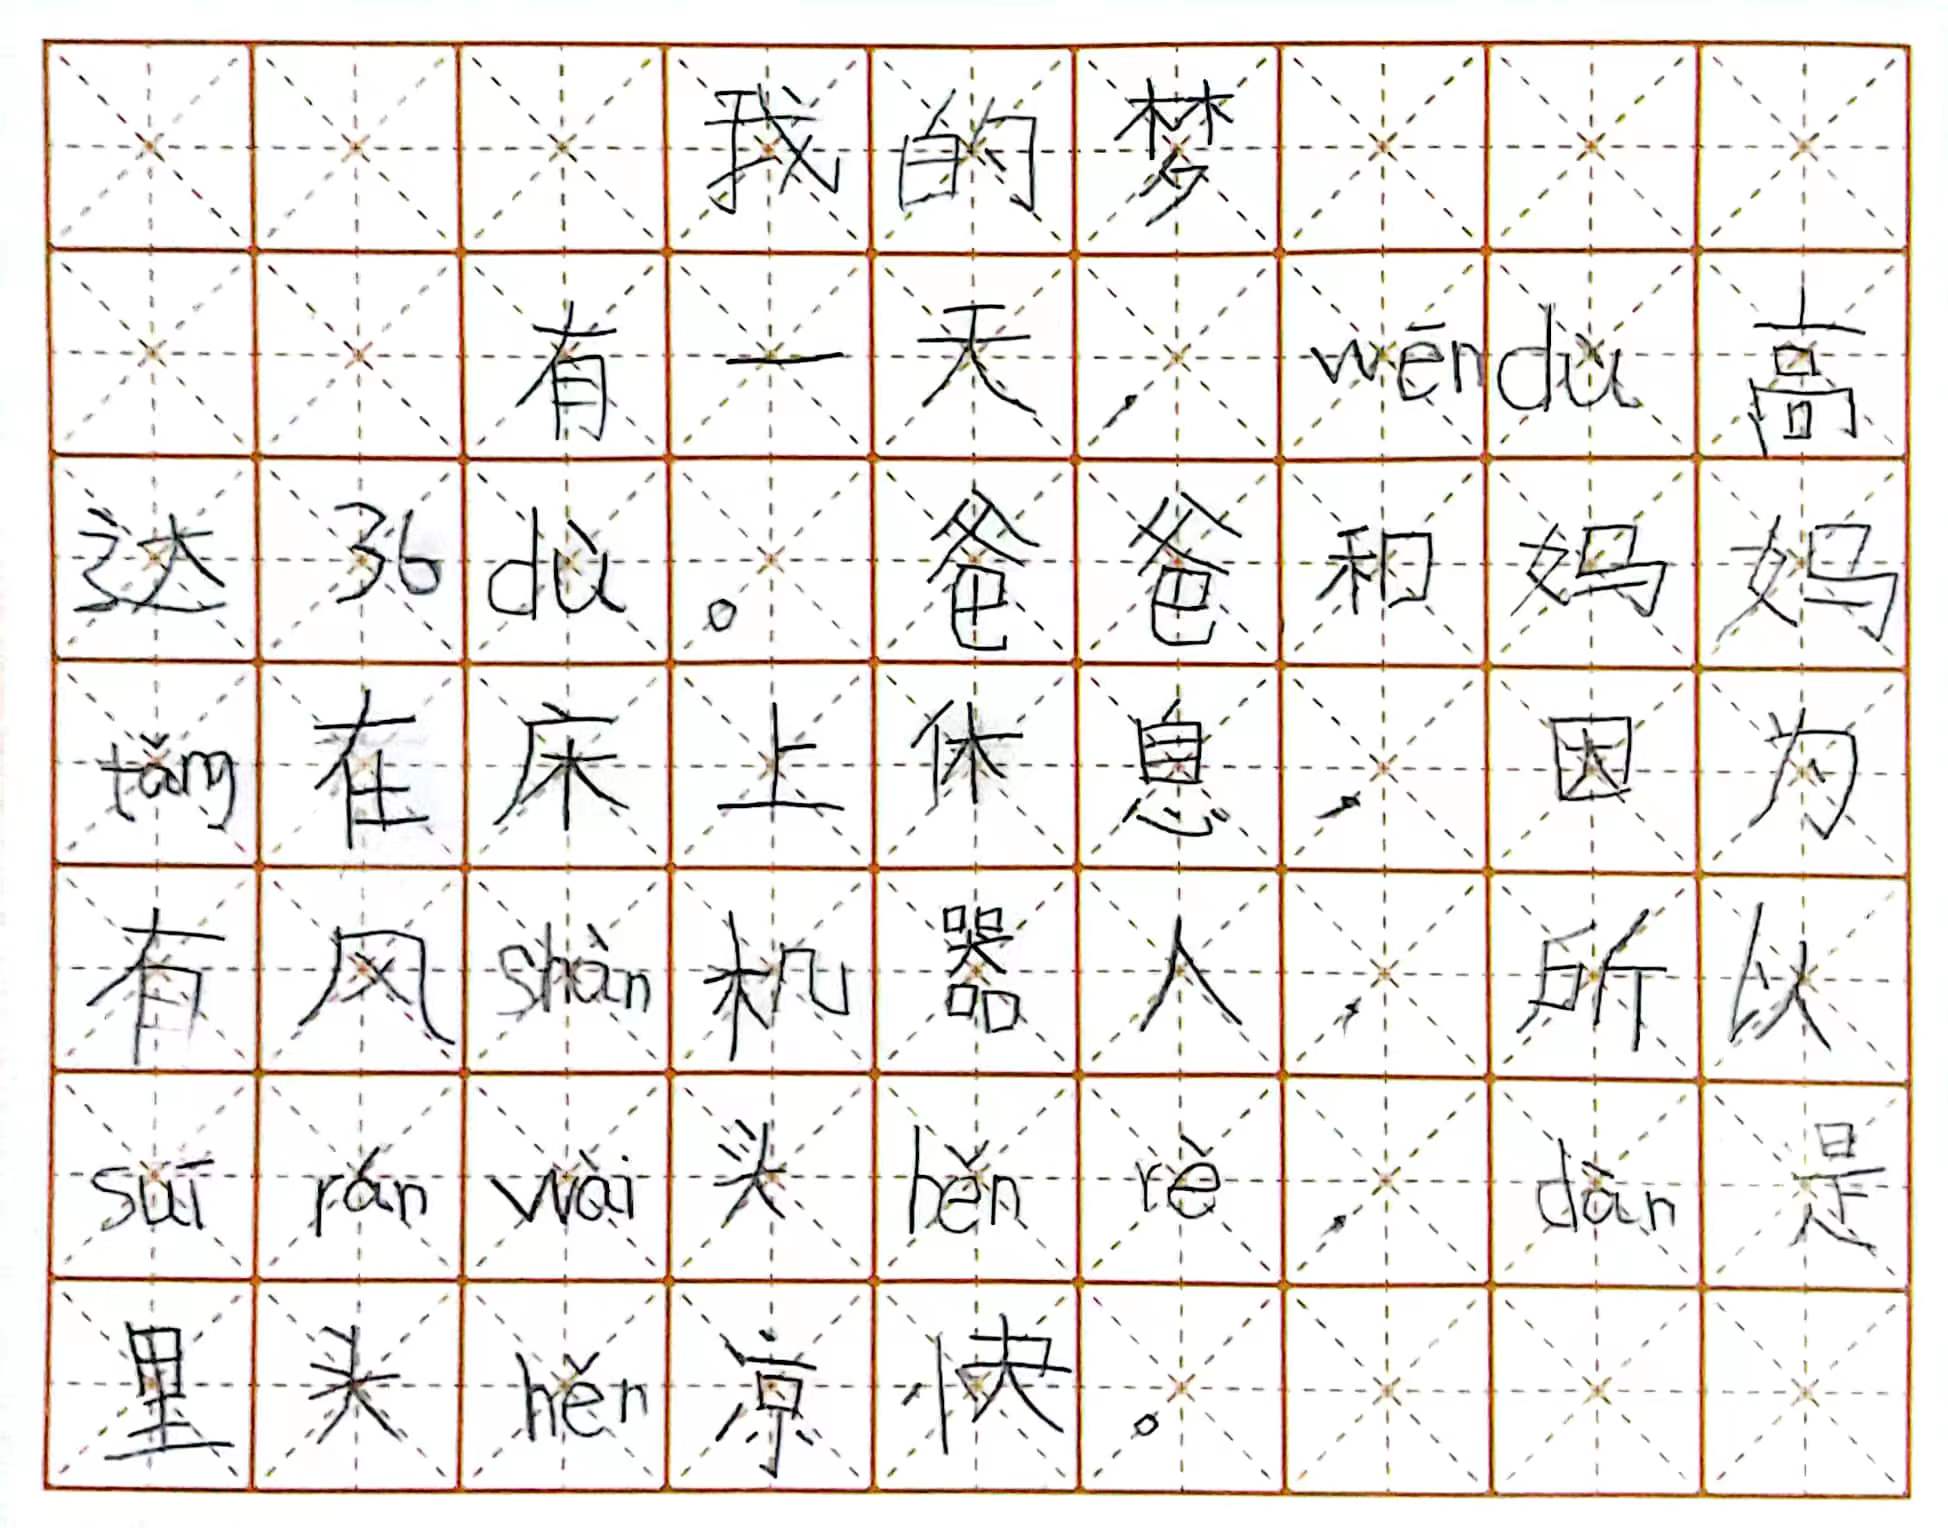 我的梦
有一天，wēndù高
达36dù。爸爸和妈妈
tǎng在床上休息，因为
有风shàn机器人，所以
suī rán wài头hěn rè，dàn是
里头hěn凉快。